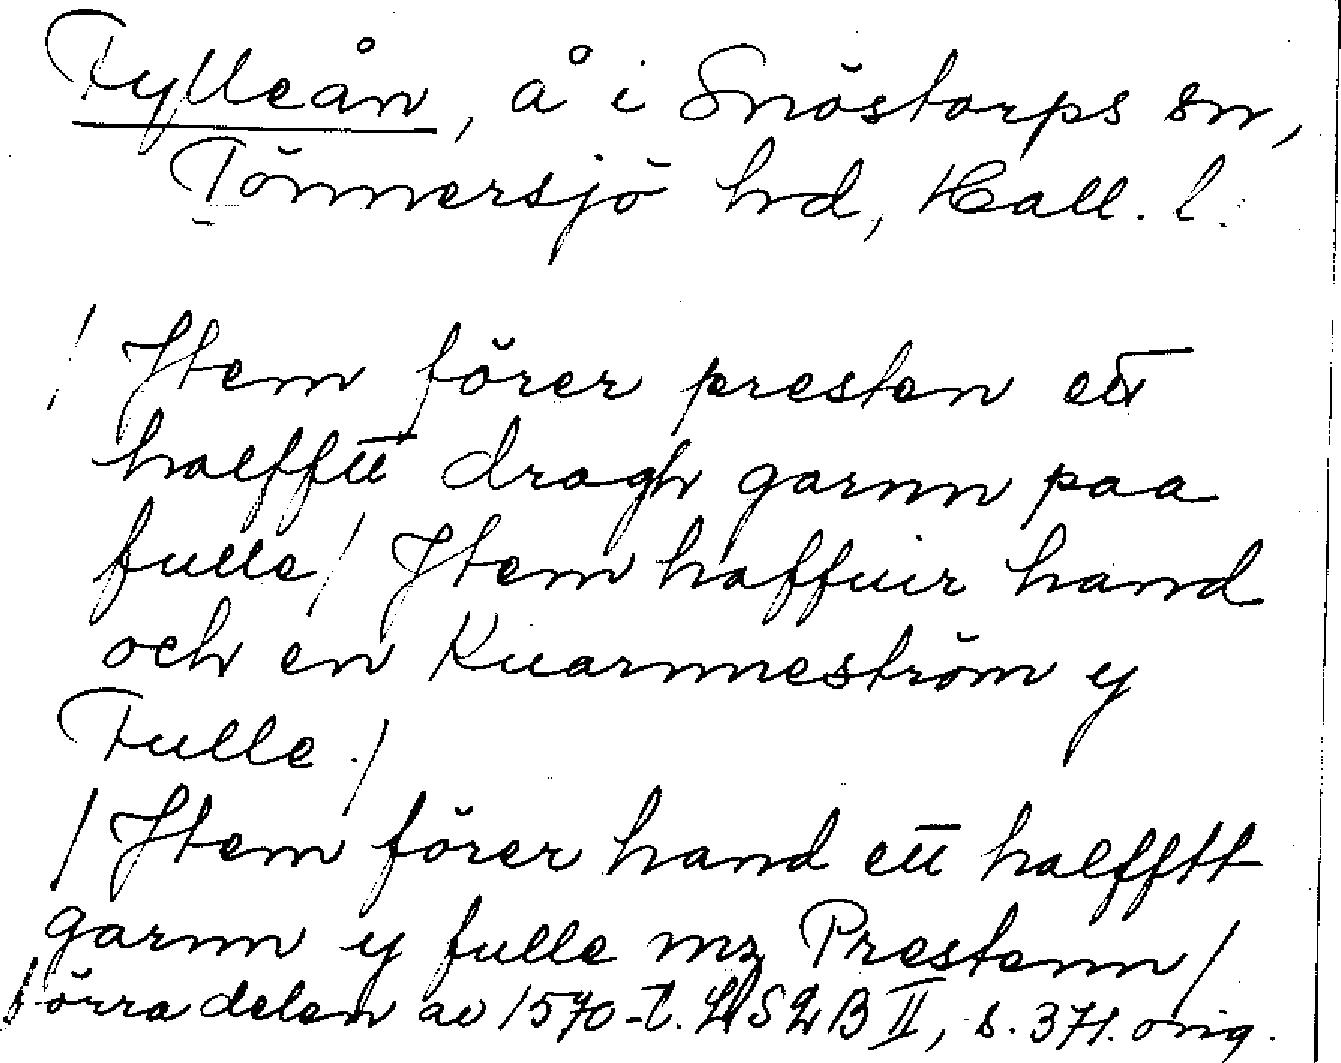 Fylleån, å i Snöstorps sn,
Tönnersjö hd, Hall. l.
/ Jtem förer presten ett
halfftt dragh garnn paa
fulle / Jtem haffuir hand
och en Kuarnneström y
Fulle. /
/ Jtem förer hand ett halfftt
garnn y fulle mz Prestenn /
förra delen av 1570-t. s. 371. orig.